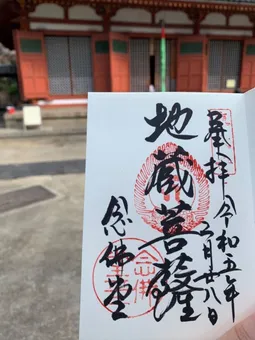 奉拝
令和五年
三月廿八日
地蔵菩薩
念佛堂